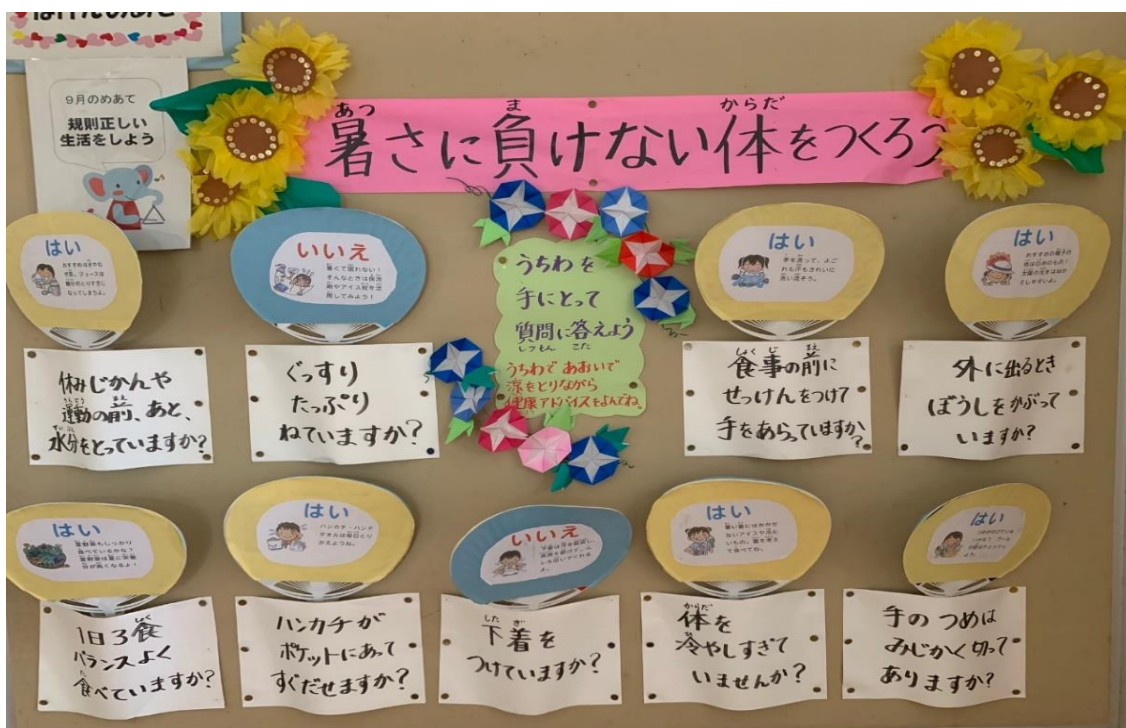 ほけんのめあて
9月のめあて
規則正しい
生活をしよう
あつ ま からだ
暑さに負けない体をつくろう
はい
いいえ
暑くて眠れない！
そんなときは保冷
剤やアイス枕を活
用してみよう！
うちわを
手にとって
質問に答えよう
しつもん こた
うちわであおいで
涼をとりながら
健康アドバイスをよんでね。
はい
手を洗って、よご
れも汗もきれいに
洗い流そう。
はい
休みじかんや
運動の前、あと、
水分をとっていますか？
ぐっすり
たっぷり
ねていますか？
しょくじ まえ
食事の前に
せっけんをつけて
手をあらっていますか？
外に出るとき
ぼうしをかぶって
いますか？
はい
夏野菜もしっかり
食べているかな？
はい
ハンカチ・ハンド
タオルは毎日とり
かえようね。
いいえ
はい
はい
1日3食
バランスよく
食べていますか？
ハンカチが
ポケットにあって
すぐだせますか？
したぎ
下着を
つけていますか？
からだ
体を
冷やしすぎて
いませんか？
手のつめは
みじかく切って
ありますか？